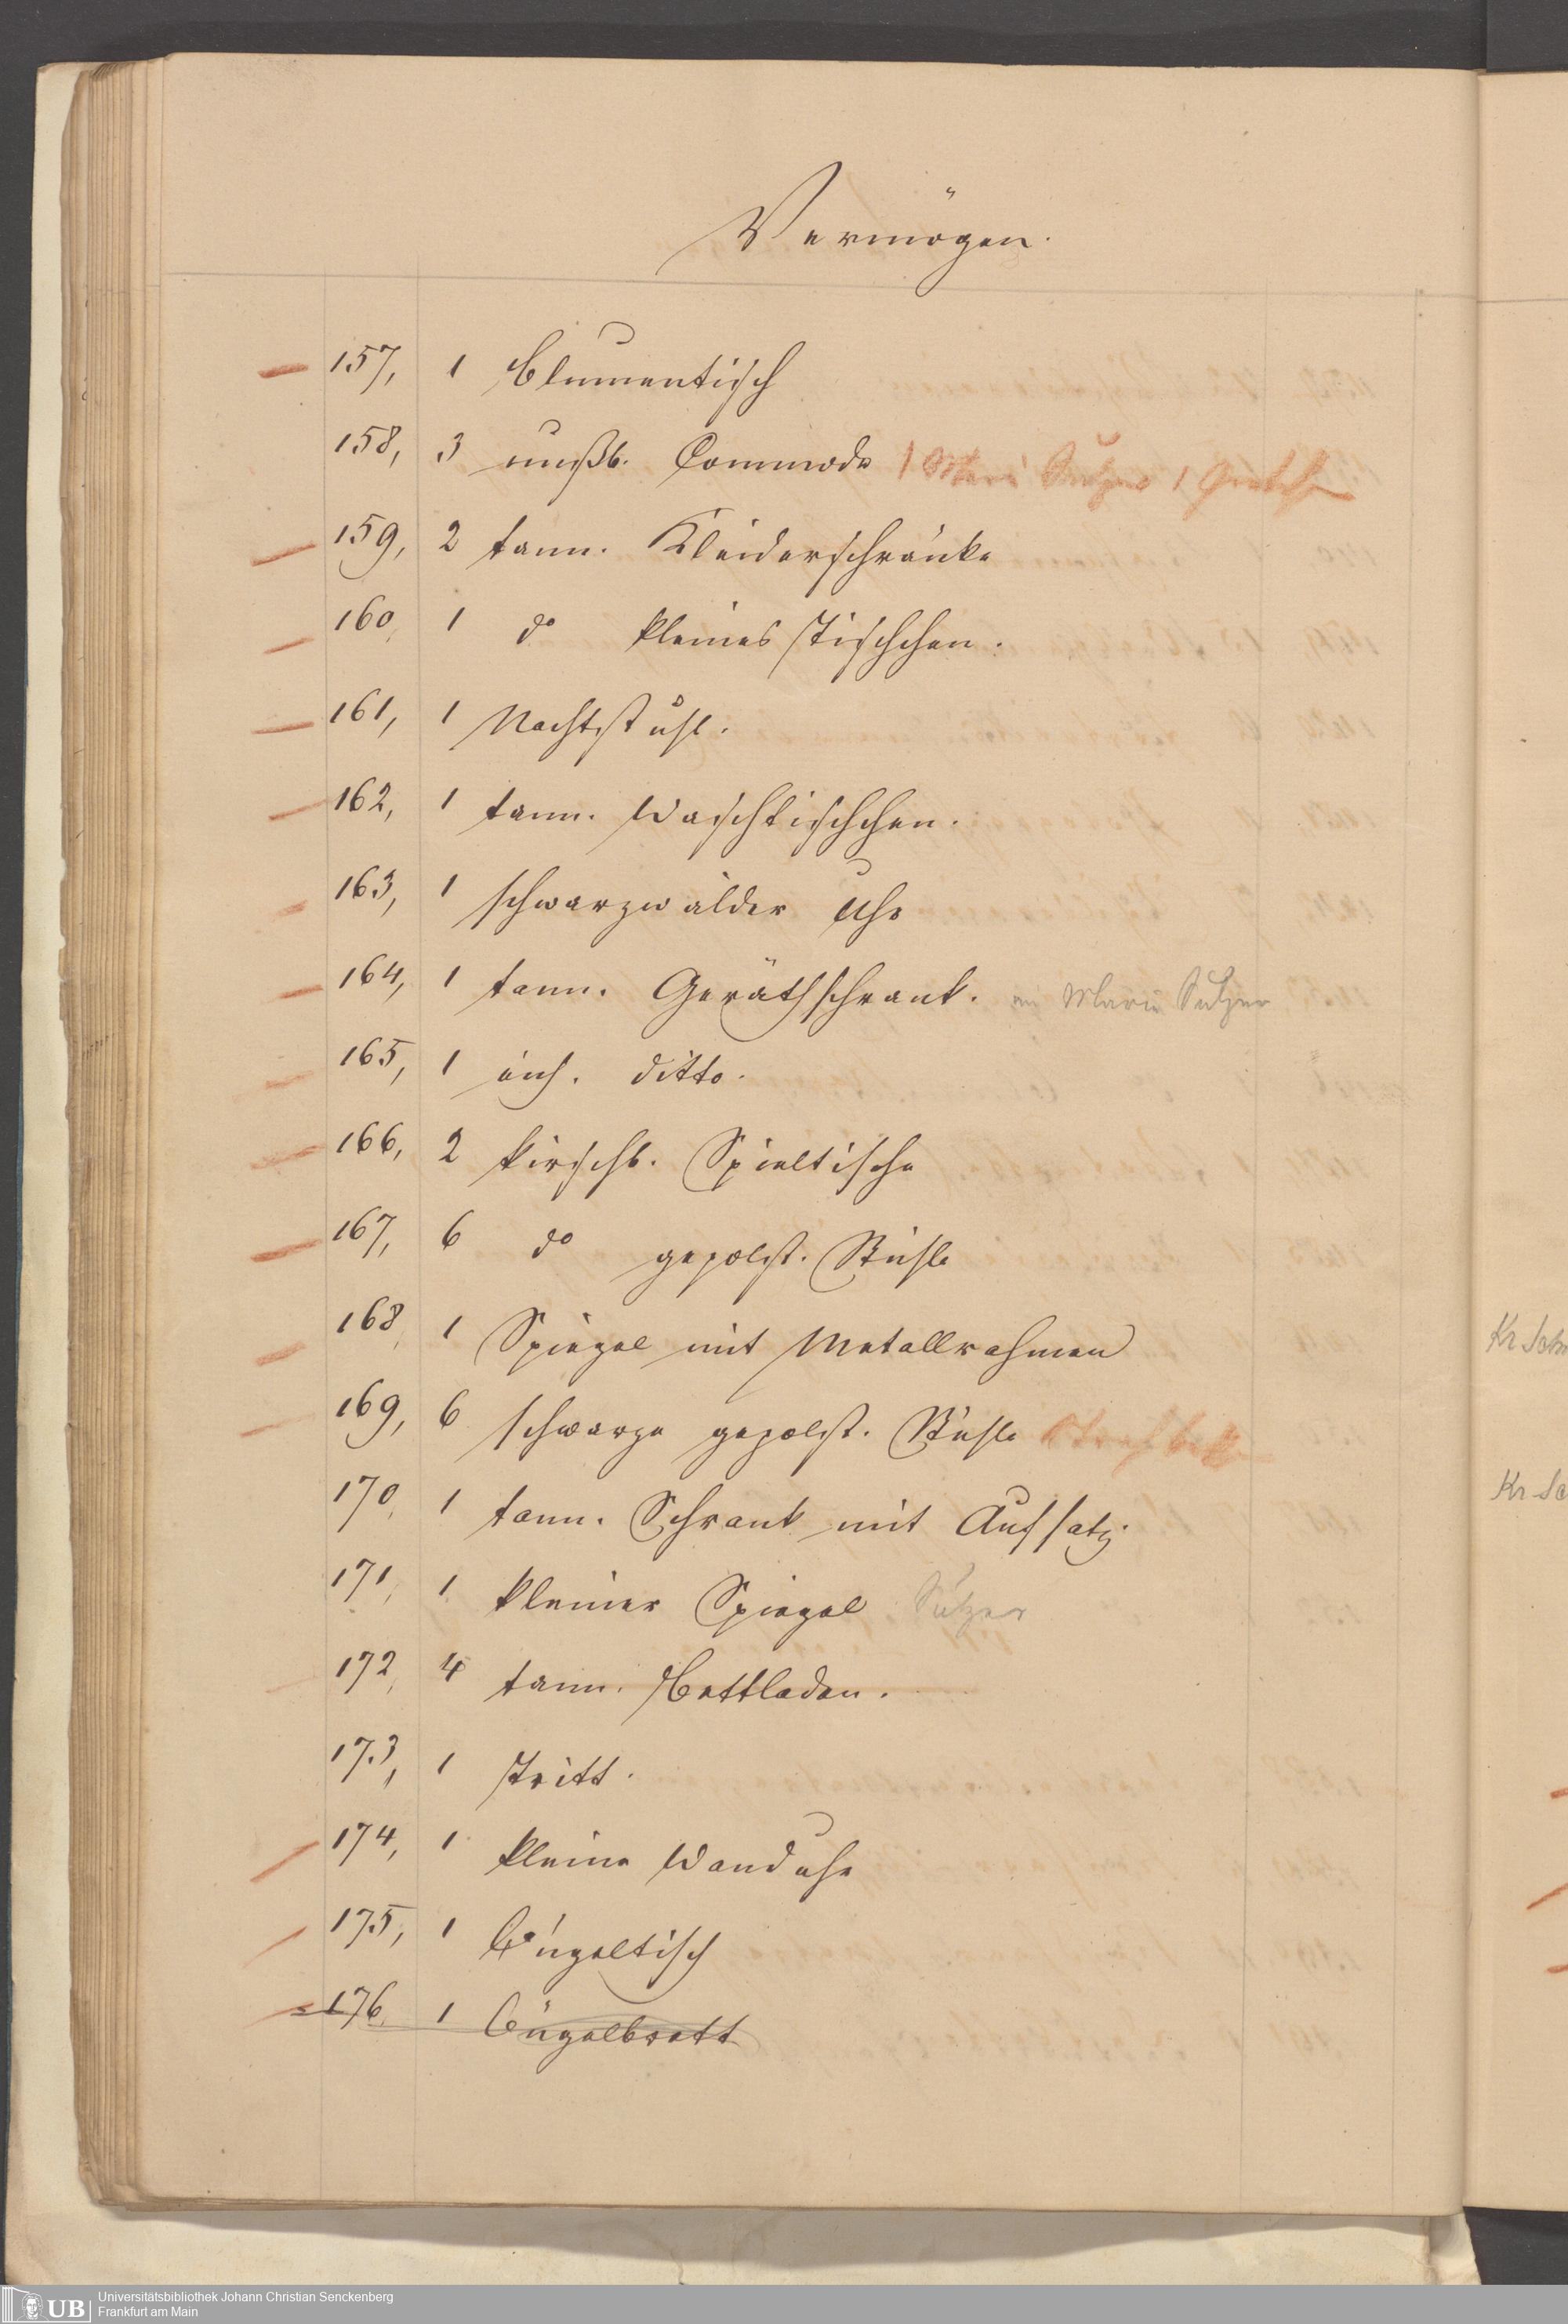 Vermögen.
157, 1 Blumentisch
158, 3 nußb. Commode 1 Marie Sulzer 1
159, 2 tann. Kleiderschränke
160, 1 do kleines Tischchen.
161, 1 Nachtstuhl.
162, 1 tann. Waschtischchen.
163, 1 schwarzwälder Uhr
164, 1 tann. Geräthschrank. an Marie Sulzer
165, 1 eich. ditto.
166, 2 kirschb. Spieltische
167, 6 do gepolst. Stühle
168, 1 Spiegel mit Metallrahmen
169, 6 schwarze gepolst. Stühle
170, 1 tann. Schrank mit Aufsatz.
171, 1 kleiner Spiegel Sulzer
172, 4 tann. Bettladen.
173, 1 Tritt.
174, 1 kleine Wanduhr
175, 1 Bügeltisch
176, 1 Bügelbrett
Kr
Kr
UB Universitätsbibliothek Johann Christian Senckenberg
Frankfurt am Main